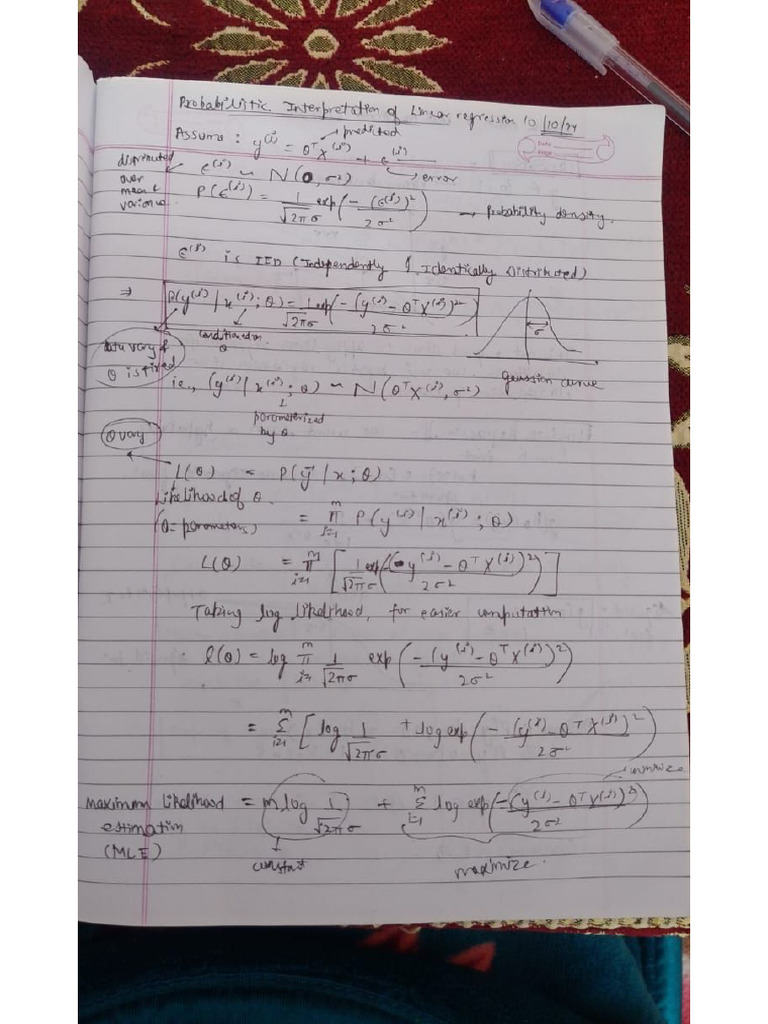 Probabilistic Interpretation of Linear regression 10/10/24
Date
Page
predicted
Assume : y^(i) = θ^T x^(i) + ϵ^(i)
error
distributed over mean & variance
ϵ^(i) ~ N(0, σ²)
P(ϵ^(i)) = 1/√2π σ exp(-(ϵ^(i))²/2σ²) → Probability density.
ϵ^(i) is IID (Independently & Identically Distributed)
⇒ P(y^(i) | x^(i); θ) = 1/√2π σ exp(-(y^(i) - θ^T x^(i))²/2σ²)
σ
conditioned on θ
data vary & θ is fixed
gaussian curve
i.e., (y^(i) | x^(i); θ) ~ N(θ^T x^(i), σ²)
parameterized by θ
θ vary
L(θ) = P(y⃗ | x; θ)
likelihood of θ
(θ = parameters) = π_{i=1}^m P(y^(i) | x^(i); θ)
L(θ) = π_{i=1}^m [1/√2π σ exp(-(y^(i) - θ^T x^(i))²/2σ²)]
Taking log likelihood, for easier computation
l(θ) = log π_{i=1}^m 1/√2π σ exp(-(y^(i) - θ^T x^(i))²/2σ²)
= Σ_{i=1}^m [log 1/√2π σ + log exp(-(y^(i) - θ^T x^(i))²/2σ²)
minimize
Maximum likelihood estimation (MLE) = m log 1/√2π σ + Σ_{i=1}^m log exp(-(y^(i) - θ^T x^(i))²/2σ²)
constant
maximize.